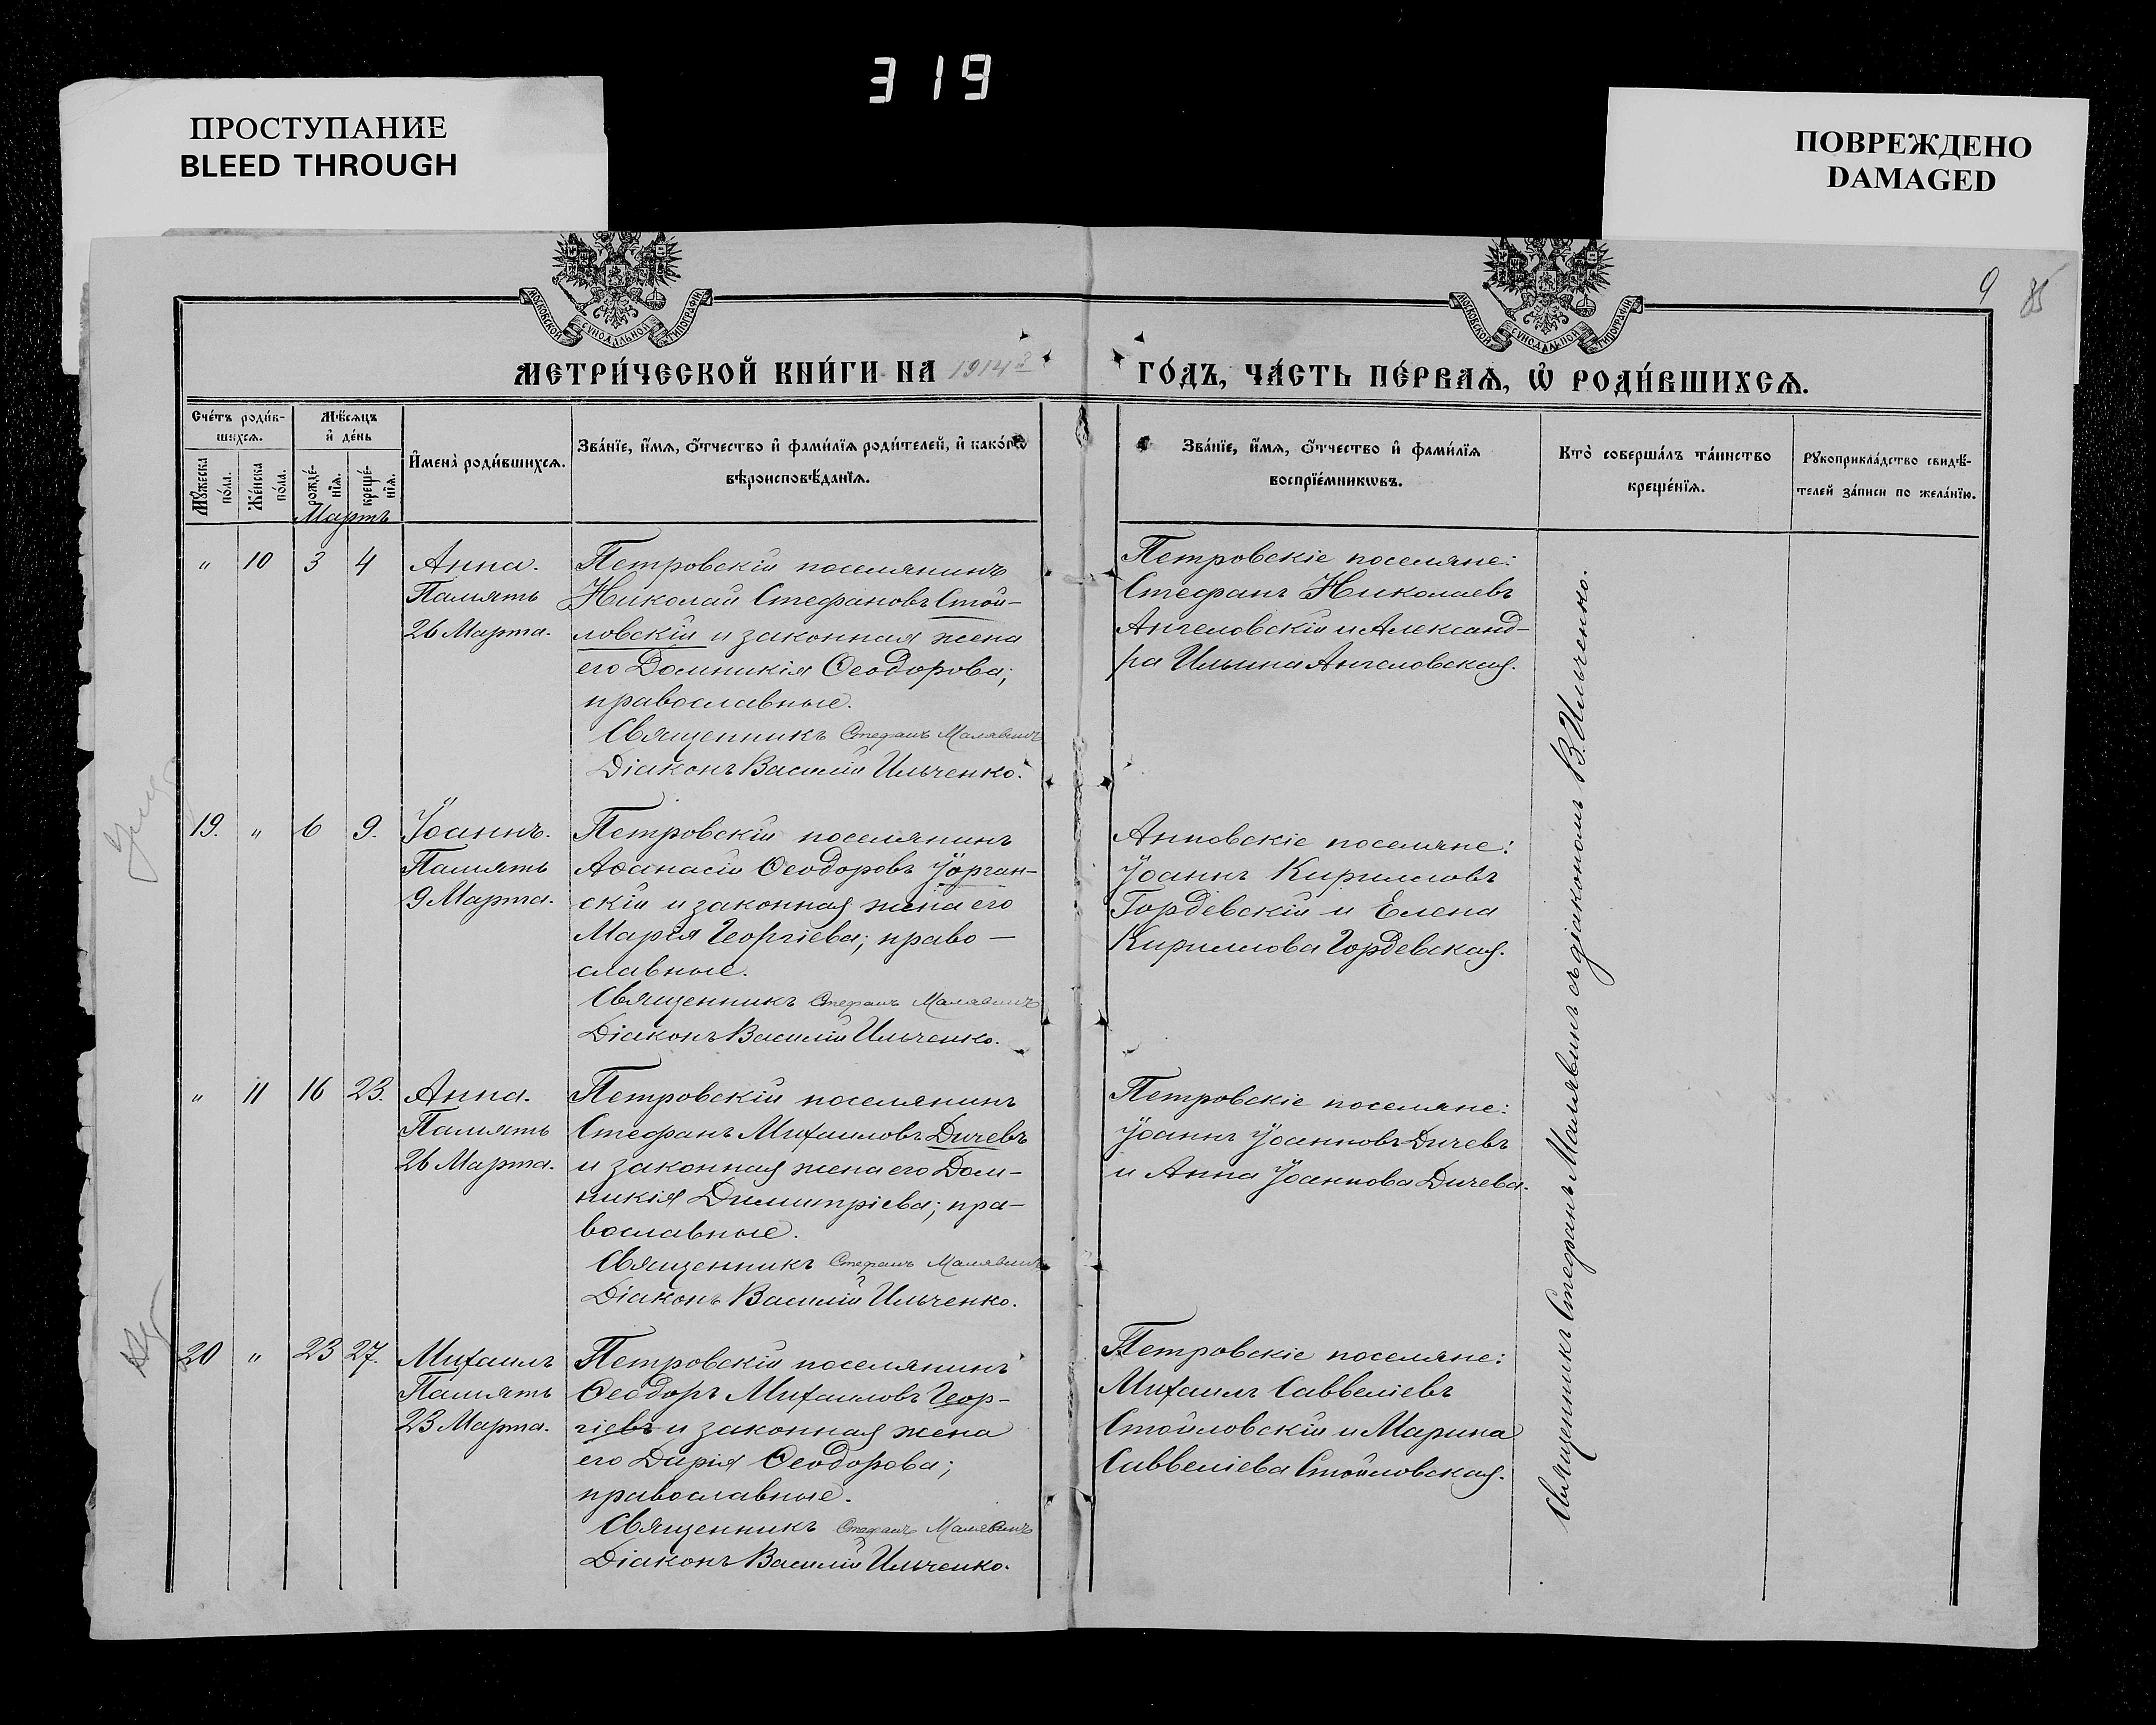 319
ПРОСТУПАНИЕ
BLEED THROUGH
ПОВРЕЖДЕНО
DAMAGED
МОСКОВСКОЙ СѴНОДАЛЬНОЙ ТИПОГРАФІИ
МОСКОВСКОЙ СѴНОДАЛЬНОЙ ТИПОГРАФІИ
9 85
МЕТРИ́ЧЕСКОЙ КНИ́ГИ НА 1914й
ГО́ДЪ, ЧА́СТЬ ПЕ́РВАѦ, Ѡ҆ РОДИ́ВШИХСѦ.
Сче́тъ роди́в-
шихсѧ.
Мѣ́сѧцъ
и҆ де́нь
Мꙋ́жеска
по́ла.
Же́нска
по́ла.
рожде́-
нїѧ.
креще́-
нїѧ.
И҆мена̀ роди́вшихсѧ.
Зва́нїе, и҆́мѧ, ѻ҆́тчество и҆ фами́лїѧ роди́телей, и҆ како́гѡ
вѣроисповѣ́данїѧ.
Зва́нїе, и҆́мѧ, ѻ҆́тчество и҆ фами́лїѧ
воспрїе́мникѡвъ.
Кто̀ соверша́лъ та́инство
креще́нїѧ.
Рꙋкоприкла́дство свидѣ́-
телей за́писи по жела́нїю.
Мартъ
" 10 3 4 Анна.
Память
26 Марта.
Петровскій поселянинъ
Николай Стефановъ Стой-
ловскій и законная жена
его Домникія Ѳеодорова;
православные.
Священникъ Стефанъ Малявинъ
Діаконъ Василій Ильченко.
Петровскіе поселяне:
Стефанъ Николаевъ
Ангеловскій и Александ-
ра Ильина Ангеловская.
19. " 6 9. Іоаннъ.
Память
9 Марта.
Петровскій поселянинъ
Аѳанасій Ѳеодоровъ Іорган-
скій и законная жена его
Марія Георгіева; право-
славные.
Священникъ Стефанъ Малявинъ
Діаконъ Василій Ильченко.
Анновскіе поселяне:
Іоаннъ Кирилловъ
Гордевскій и Елена
Кириллова Гордевская.
" 11 16 23. Анна.
Память
26 Марта.
Петровскій поселянинъ
Стефанъ Михаиловъ Дичевъ
и законная жена его Дом-
никія Димитріева; пра-
вославные.
Священникъ Стефанъ Малявинъ
Діаконъ Василій Ильченко.
Петровскіе поселяне:
Іоаннъ Іоанновъ Дичевъ
и Анна Іоаннова Дичева.
20 " 23 27. Михаилъ
Память
23 Марта.
Петровскій поселянинъ
Ѳеодоръ Михаиловъ Геор-
гіевъ и законная жена
его Дарія Ѳеодорова;
православные.
Священникъ Стефанъ Малявинъ
Діаконъ Василій Ильченко.
Петровскіе поселяне:
Михаилъ Саввеліевъ
Стойловскій и Марина
Саввеліева Стойловская.
Священникъ Стефанъ Малявинъ съ діакономъ В. Ильченко.